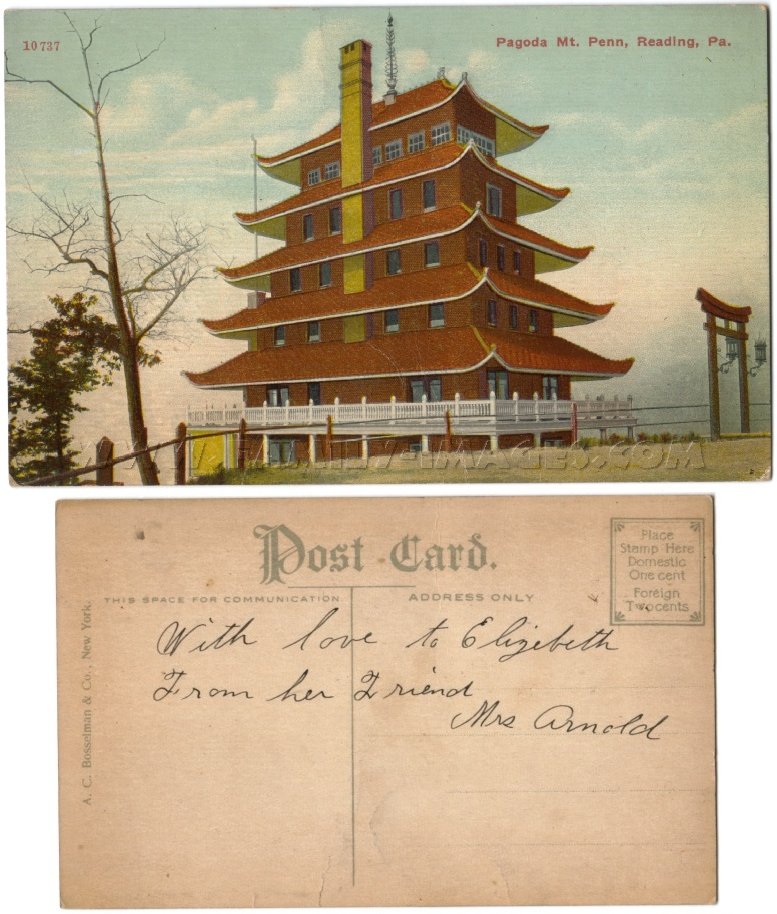 10737
Pagoda Mt. Penn, Reading, Pa.
WWW.FAMILY-IMAGES.COM
Post Card.
Place
Stamp Here
Domestic
One cent
Foreign
Two cents
THIS SPACE FOR COMMUNICATION
ADDRESS ONLY
With love to Elizebeth
From her Friend
Mrs Arnold
A. C. Bosselman & Co., New York.